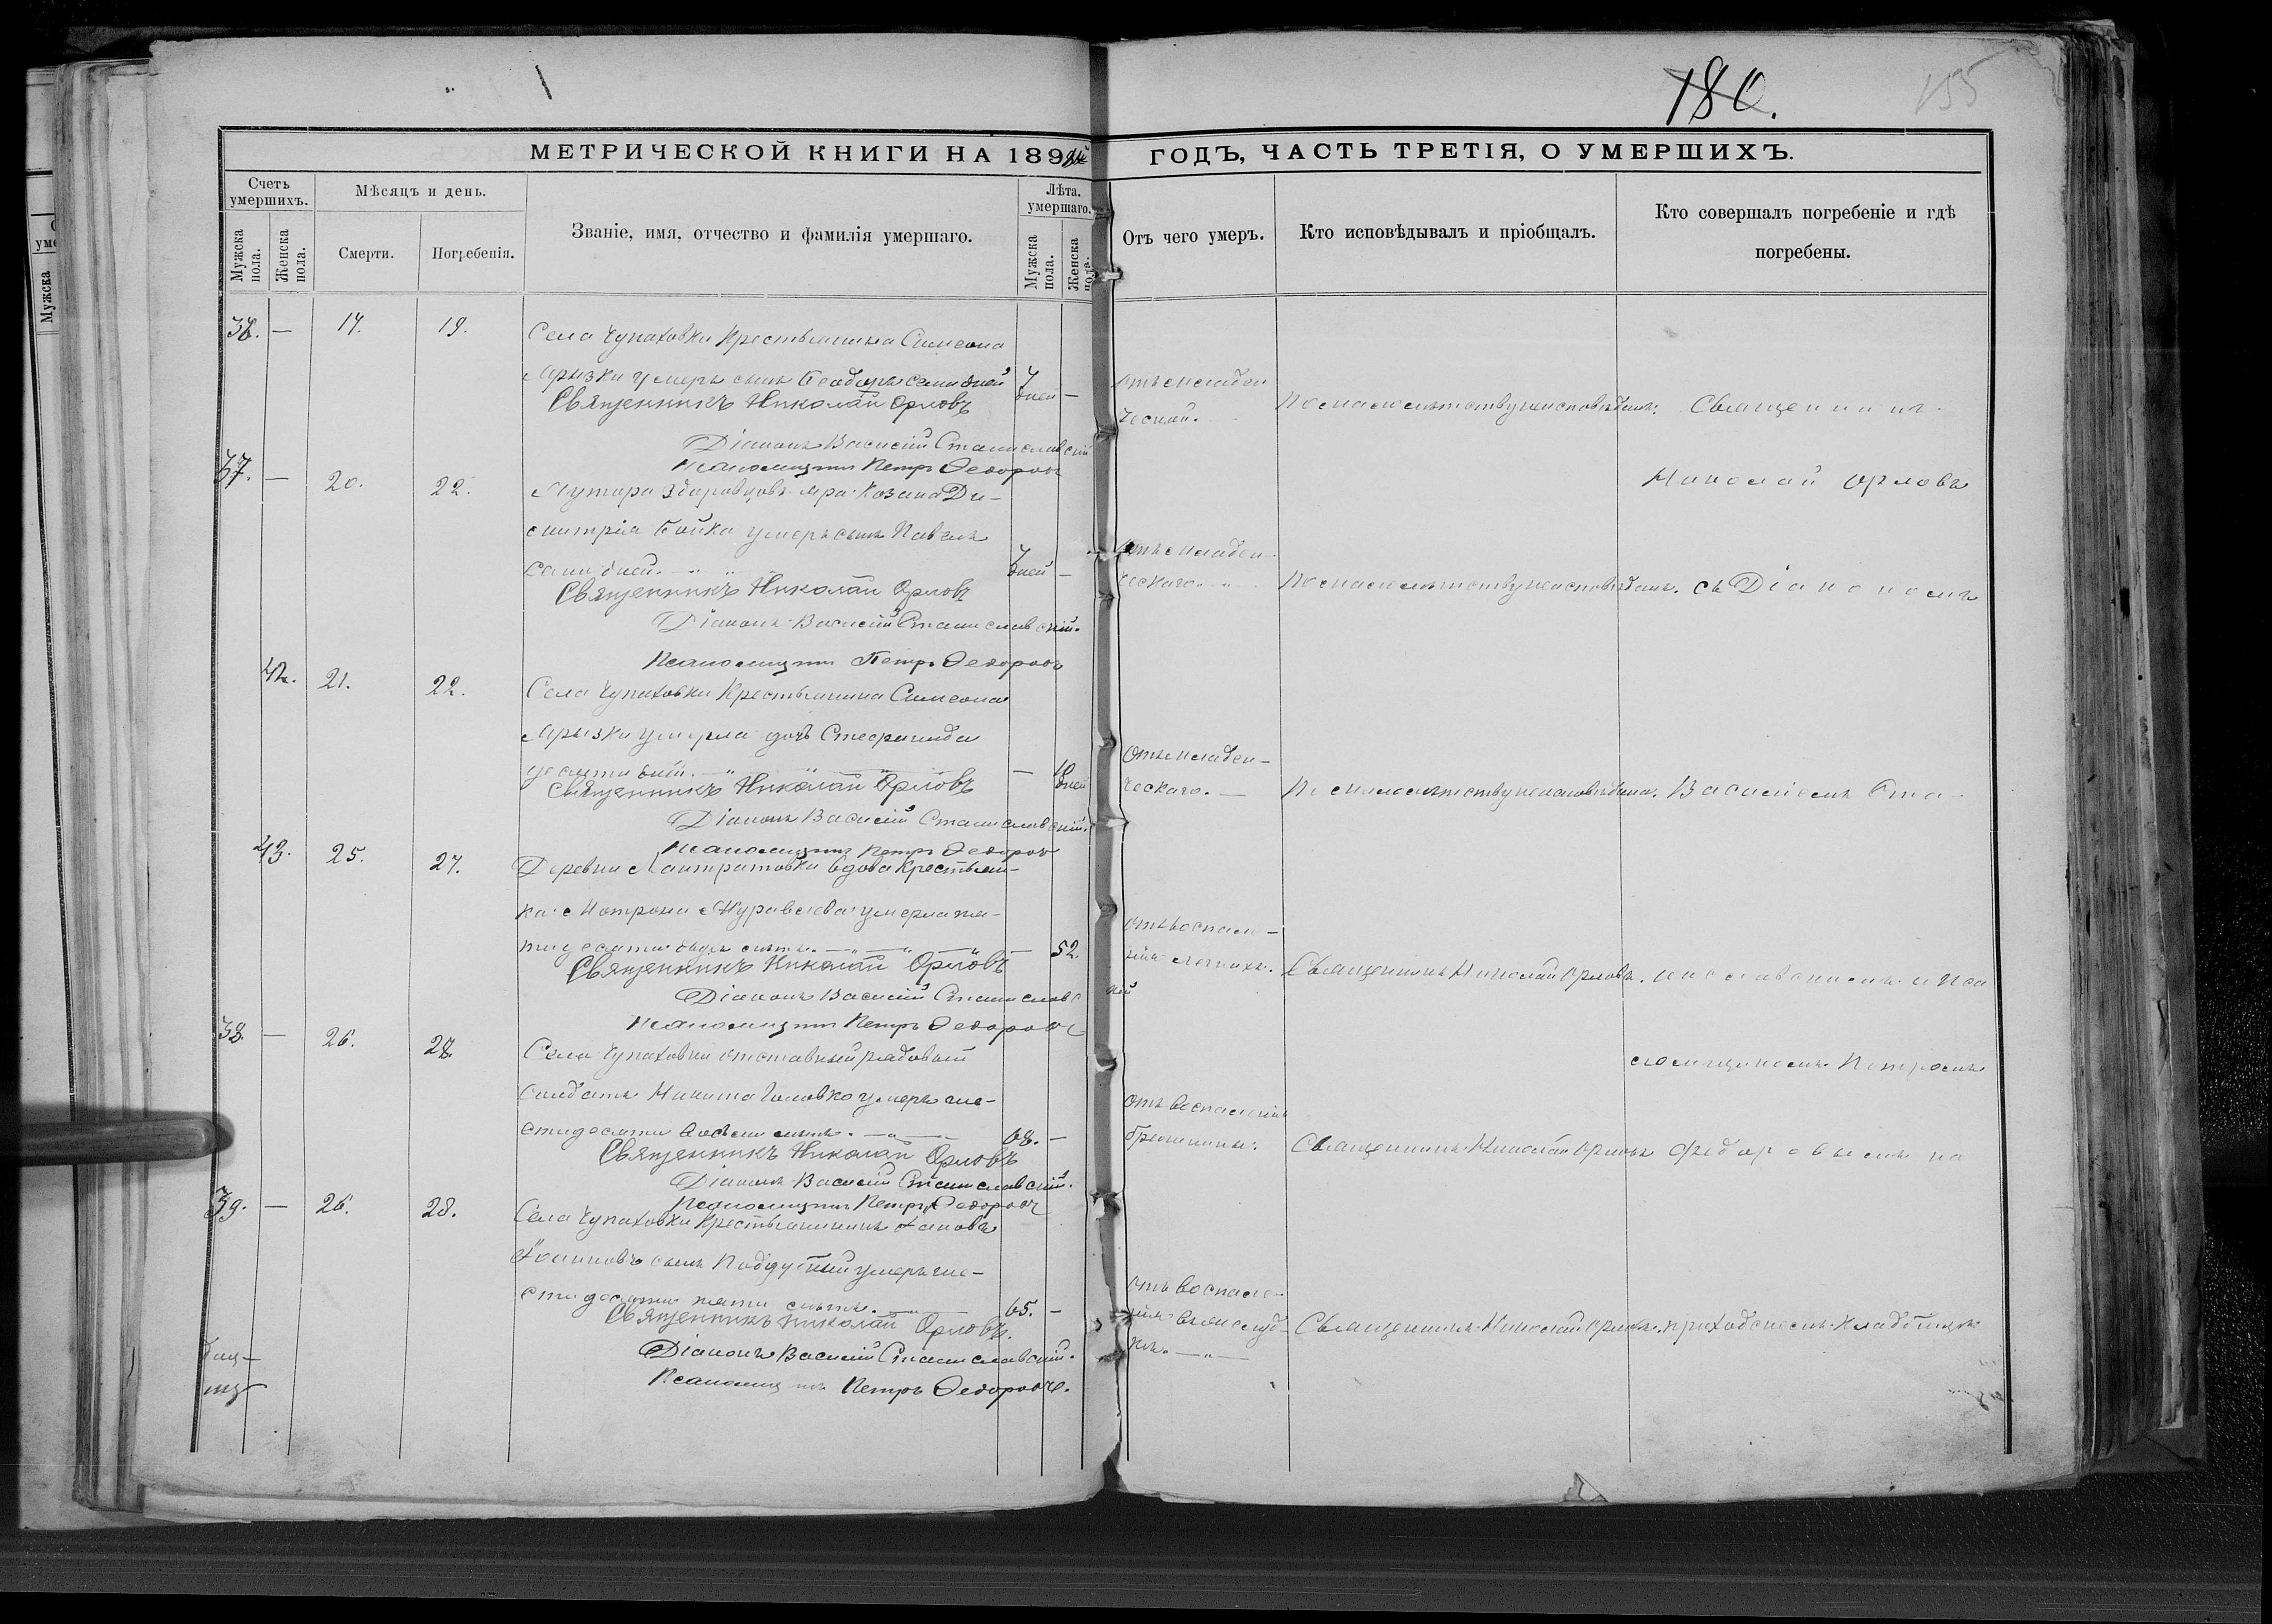 180.
155
МЕТРИЧЕСКОЙ КНИГИ НА 189
ГОДЪ, ЧАСТЬ ТРЕТІЯ, О УМЕРШИХЪ.
Счетъ умершихъ.
Мужска пола.
Женска пола.
Мѣсяцъ и день.
Смерти.
Погребенія.
Званіе, имя, отчество и фамилія умершаго.
Лѣта. умершаго.
Мужска пола.
Женска пола.
Отъ чего умеръ.
Кто исповѣдывалъ и пріобщалъ.
Кто совершалъ погребеніе и гдѣ
погребены.
— 19.
Села Чупаховки Крестьянина Симеона
умеръ сынъ Ѳеодоръ семи дней 7 дней —
Священникъ Николай Орловъ
Отъ младен
ческой.
По малолѣтству неисповѣданъ.
Священникъ
Діаконъ Василій Станиславскій
Псаломщикъ Петръ Ѳедоровъ
37. — 20. 22.
Хутора Козака Ди-
митрія Бойка умеръ сынъ Павелъ
семи дней. 7 дней —
Священникъ Николай Орловъ
Діаконъ Василій Станиславскій.
Псаломщикъ Петръ Ѳедоровъ
Отъ младен-
ческаго.
По малолѣтству неисповѣданъ.
Николай Орловъ
съ Діакономъ
42. 21. 22.
Села Чупаховки Крестьянина Симеона
умерла дочь
десяти дней. — 10 дней
Священникъ Николай Орловъ
Діаконъ Василій Станиславскій.
Псаломщикъ Петръ Ѳедоровъ
Отъ младен-
ческаго. —
По малолѣтству неисповѣдана.
Василіемъ Ста-
43. 25. 27.
Деревни вдова крестьян-
ка Мотрона Журавлева умерла пя-
тидесяти двухъ лѣтъ. — 52.
Священникъ Николай Орловъ
Діаконъ Василій Станиславскій
Псаломщикъ Петръ Ѳедоровъ
Отъ воспале-
нія легкихъ.
Священникъ Николай Орловъ.
ниславскимъ и Пса
38. — 26. 28.
Села Чупаховки отставный рядовый
солдатъ Никита Головко умеръ ше-
стидесяти восьми лѣтъ. 68. —
Священникъ Николай Орловъ
Діаконъ Василій Станиславскій.
Псаломщикъ Петръ Ѳедоровъ
Отъ воспаленія
брюшины.
Священникъ Николай Орловъ
ломщикомъ Петромъ
Федоровымъ на
39. — 26. 28.
Села Чупаховки Крестьянинъ Іаковъ
Іоанновъ сынъ Поддубный умеръ ше-
стидесяти пяти лѣтъ. 65. —
Священникъ Николай Орловъ.
Діаконъ Василій Станиславскій.
Псаломщикъ Петръ Ѳедоровъ.
Отъ воспале-
нія въ желуд-
кѣ.
Священникъ Николай Орловъ.
приходскомъ кладбищѣ